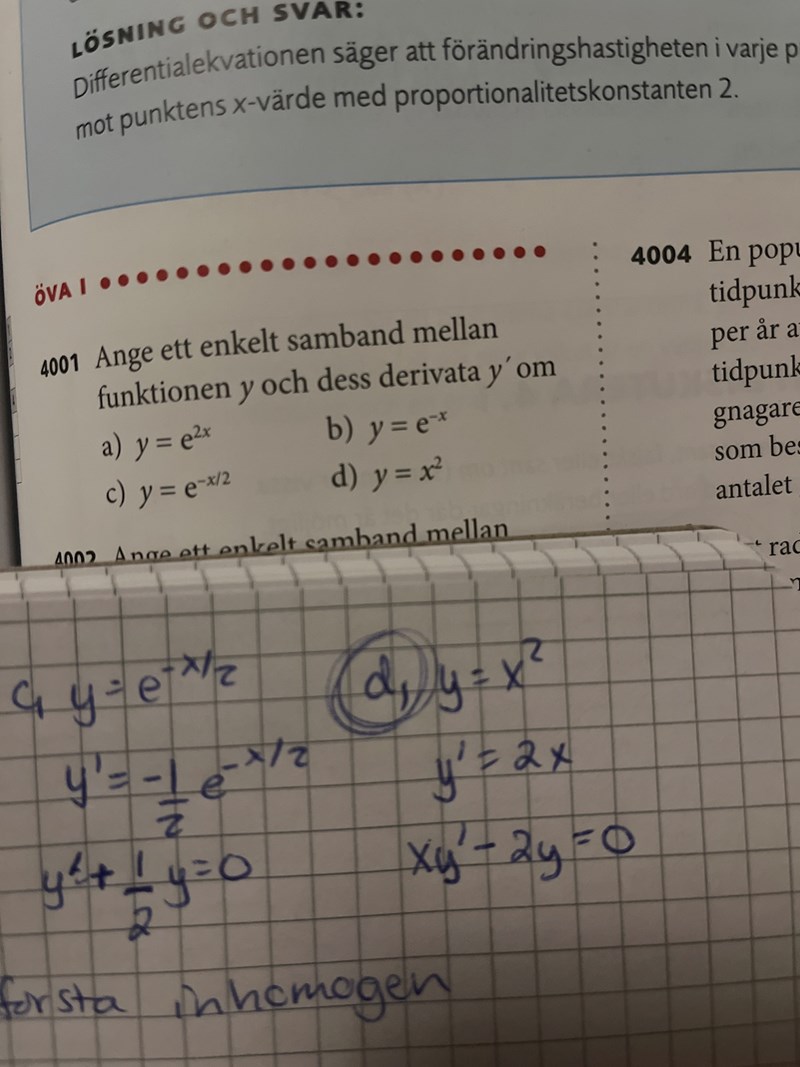 LÖSNING OCH SVAR:
Differentialekvationen säger att förändringshastigheten i varje p
mot punktens x-värde med proportionalitetskonstanten 2.
ÖVA 1
4001 Ange ett enkelt samband mellan
funktionen y och dess derivata y´ om
a) y = e²ˣ b) y = e⁻ˣ
c) y = e⁻ˣ/² d) y = x²
4002 Ange ett enkelt samband mellan
4004 En popu
tidpunk
per år a
tidpunk
gnagare
som bes
antalet
rad
c, y = e^-x/2
y' = -1/2 e^-x/2
y' + 1/2 y = 0
d, y = x²
y' = 2x
xy' - 2y = 0
första inhomogen